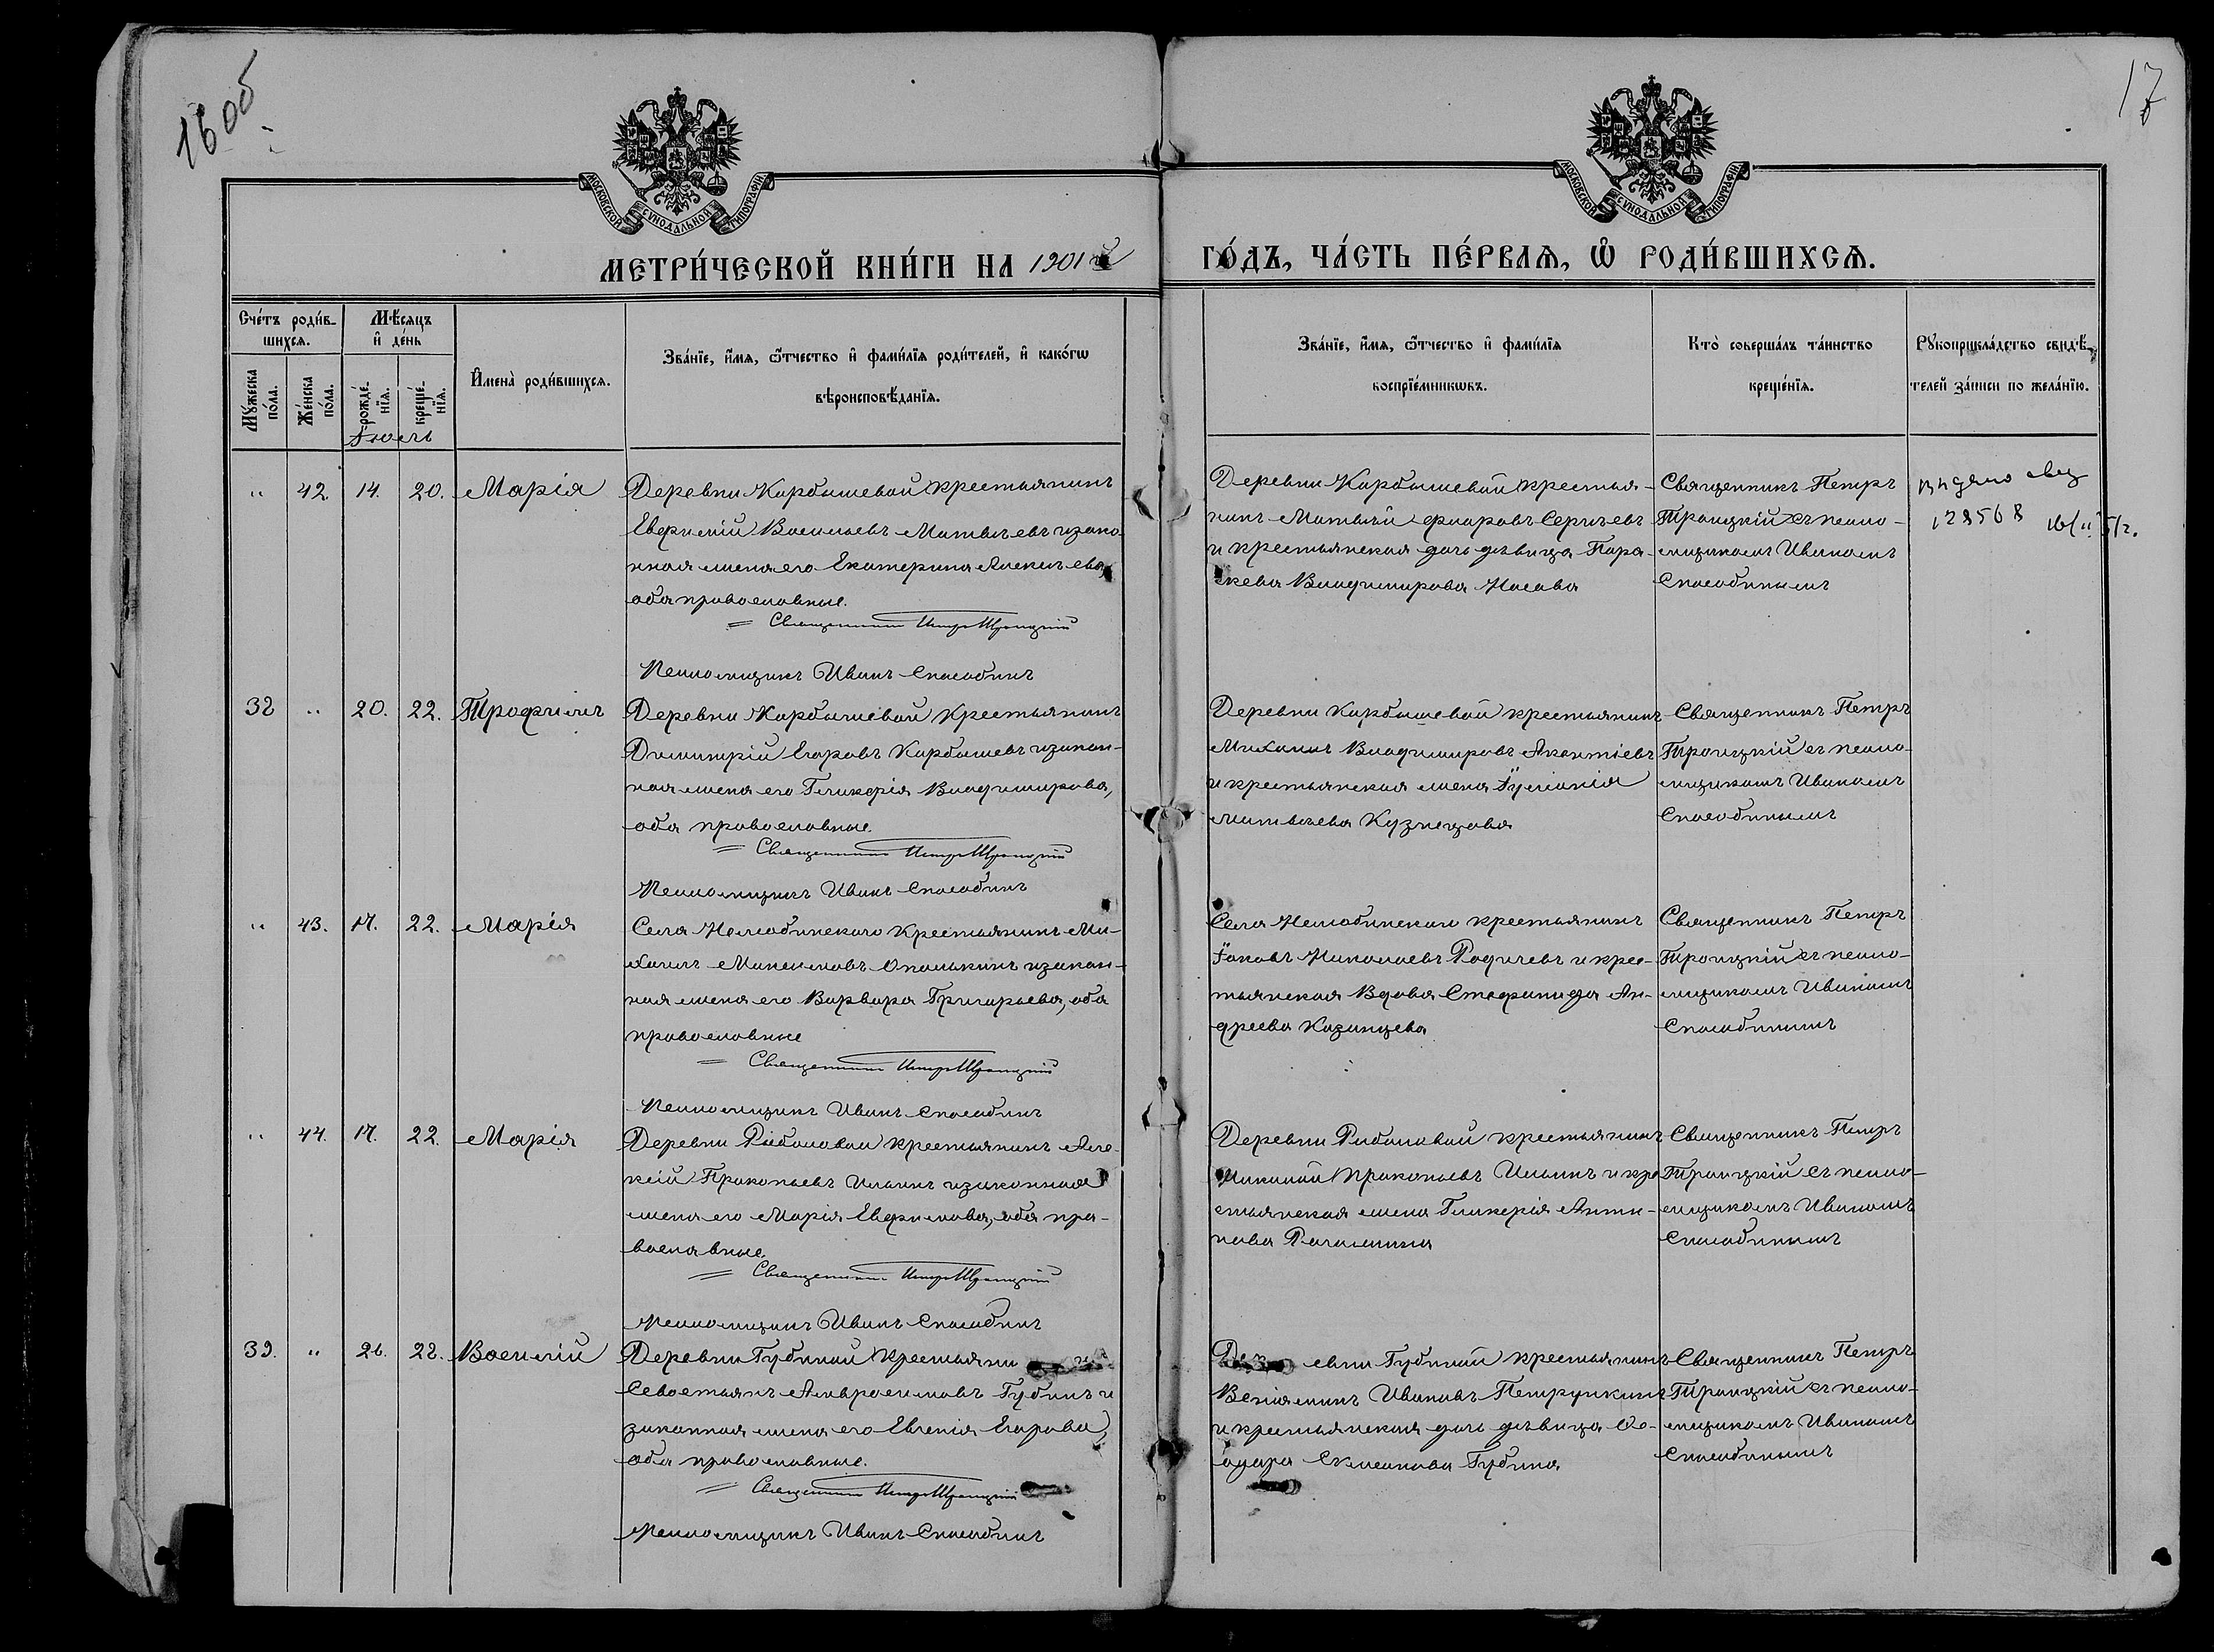 16 об
17
МОСКОВСКОЙ СѴНОДАЛЬНОЙ ТИПОГРАФІИ
МОСКОВСКОЙ СѴНОДАЛЬНОЙ ТИПОГРАФІИ
МЕТРИ́ЧЕСКОЙ КНИ́ГИ НА 1901 й
ГО́ДЪ, ЧА́СТЬ ПЕ́РВАѦ, Ѽ РОДИ́ВШИХСѦ.
Сче́тъ роди́в-
шихсѧ.
Мѣ́сѧцъ
и҆ де́нь
Му́жеска по́ла.
Же́нска по́ла.
рожде́-
нїѧ.
креще́-
нїѧ.
И҆мена̀ роди́вшихсѧ.
Зва́нїе, и҆́мѧ, ѻ҆́тчество и҆ фами́лїѧ роди́телей, и҆ како́гѡ
вѣроисповѣ́данїѧ.
Зва́нїе, и҆́мѧ, ѻ҆́тчество и҆ фами́лїѧ
воспрїе́мникѡвъ.
Кто̀ соверша́лъ та́инство
креще́нїѧ.
Рꙋкоприкла́дство свидѣ́-
телей за́писи по жела́нїю.
Іюль
" 42. 14. 20. Марія
Деревни Карбышевой крестьянинъ
Евфимій Васильевъ Матвѣевъ и зако-
нная жена его Екатерина Алексѣева,
оба православные.
= Священникъ Петръ Троицкій
Псаломщикъ Иванъ Способинъ
Деревни Карбышевой крестья-
нинъ Матвѣй Сергѣевъ
и крестьянская дочь дѣвица Пара-
скева Владимирова Носова
Священникъ Петръ
Троицкій съ псало-
мщикомъ Иваномъ
Способинымъ
128568
32 " 20. 22. Трофимъ
Деревни Карбышевой крестьянинъ
Димитрій Егоровъ Карбышевъ и закон-
ная жена его Гликерія Владимирова,
оба православные.
= Священникъ Петръ Троицкій
Псаломщикъ Иванъ Способинъ
Деревни Карбышевой крестьянинъ
Михаилъ Владимировъ
и крестьянская жена Іуліанія
Матвѣева Кузнецова
Священникъ Петръ
Троицкій съ псало-
мщикомъ Иваномъ
Способинымъ
" 43. 17. 22. Марія
Села крестьянинъ Ми-
хаилъ Максимовъ и закон-
ная жена его Варвара Григорьева, оба
православные
= Священникъ Петръ Троицкій
Псаломщикъ Иванъ Способинъ
Села крестьянинъ
Іаковъ Николаевъ и крес-
тьянская вдова Стефанида Ан-
дреева Казанцева
Священникъ Петръ
Троицкій съ псало-
мщикомъ Иваномъ
Способинымъ
" 44. 17. 22. Марія
Деревни крестьянинъ Але-
ксій Прокопьевъ Ильинъ и законная
жена его Марія Евфимова, оба пра-
вославные.
= Священникъ Петръ Троицкій
Псаломщикъ Иванъ Способинъ
Деревни крестьянинъ
Николай Прокопьевъ Ильинъ и кре
стьянская жена Гликерія Анти-
пова
Священникъ Петръ
Троицкій съ псало-
мщикомъ Иваномъ
Способинымъ
39. " 21. 22. Василій
Деревни Губиной крестьянинъ
Севостьянъ Амвросимовъ Губинъ и
законная жена его Евгенія Егорова,
оба православные.
= Священникъ Петръ Троицкій
Псаломщикъ Иванъ Способинъ
Деревни Губиной крестьянинъ
Веніаминъ Ивановъ Петрушкинъ
и крестьянская дочь дѣвица Ѳе-
одора Губина
Священникъ Петръ
Троицкій съ псало-
мщикомъ Иваномъ
Способинымъ